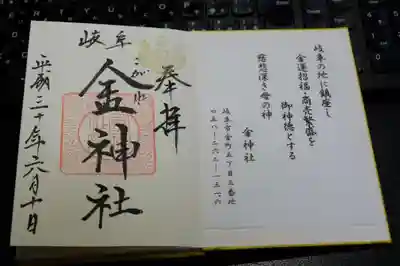 岐阜の地に鎮座し
金運招福・商売繁盛を
御神徳とする
慈悲深き母の神
金神社
岐阜市金町五丁目三番地
奉拝
岐阜
こがね
金神社
平成三十年六月十日